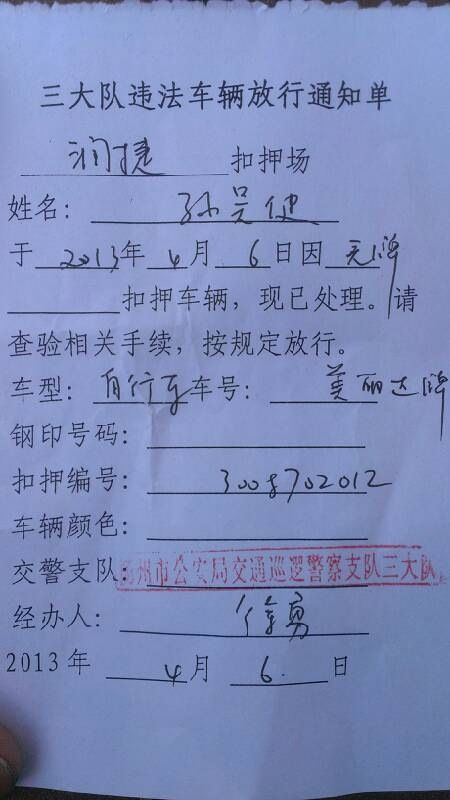 三大队违法车辆放行通知单
润捷 扣押场
姓名：孙吴健
于 2013年 4月 6日因 无牌
扣押车辆，现已处理。请
查验相关手续，按规定放行。
车型：自行车 车号：美丽达牌
钢印号码：
扣押编号：3008702012
车辆颜色：
交警支队：州市公安局交通巡逻警察支队三大队
经办人：徐勇
2013年 4月 6. 日